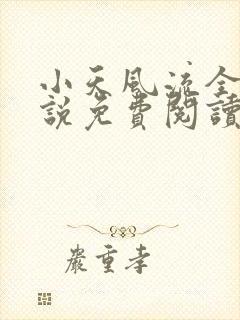 小天風流全
說免費閱讀
嚴重孝